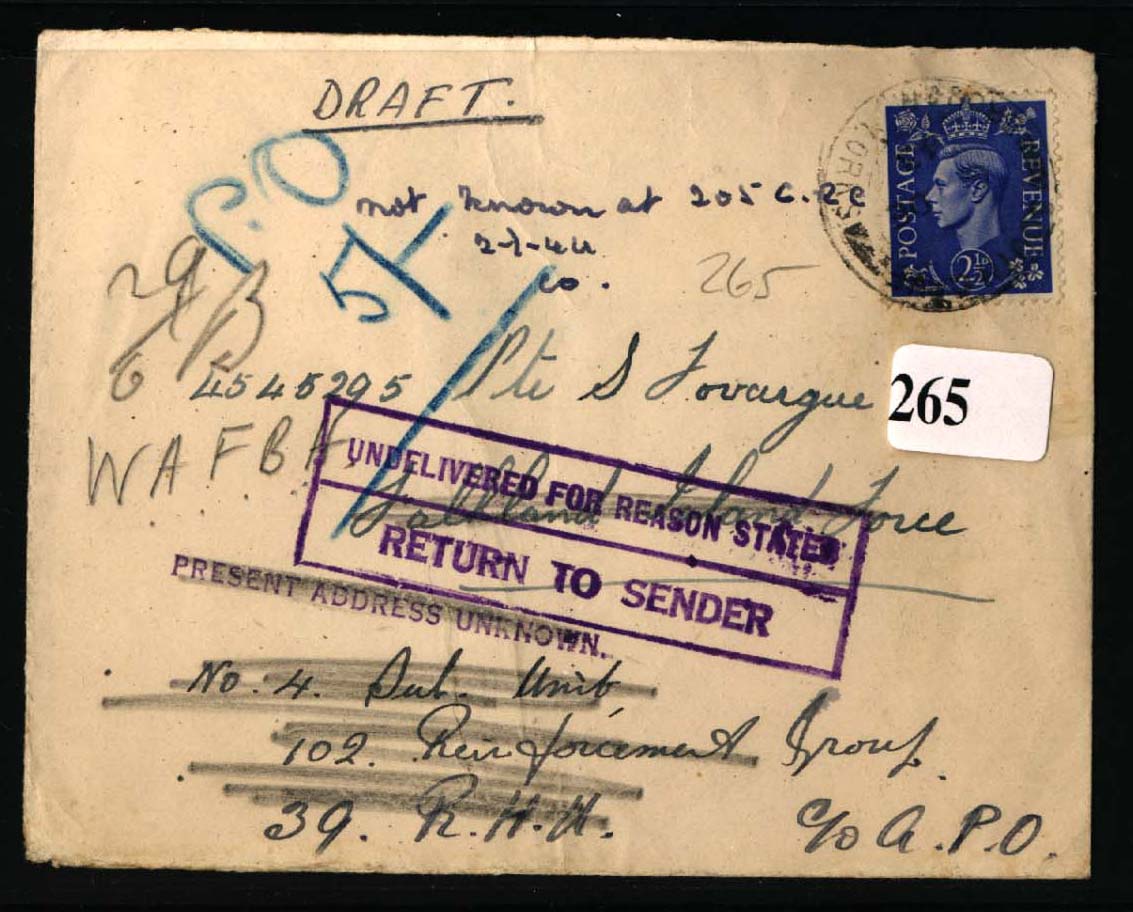 DRAFT.
P.O
not known at 205 G.
2-7-44
Co.
57
265
POSTAGE REVENUE
2½D
YORKS
29
B
6
4545295 Pte S Fovargue
265
W A F B A
Falkland Island Force
UNDELIVERED FOR REASON STATED
RETURN TO SENDER
PRESENT ADDRESS UNKNOWN.
No. 4. Sub. Unit
102. Reinforcement Group.
39. R.H.U. c/o A.P.O.